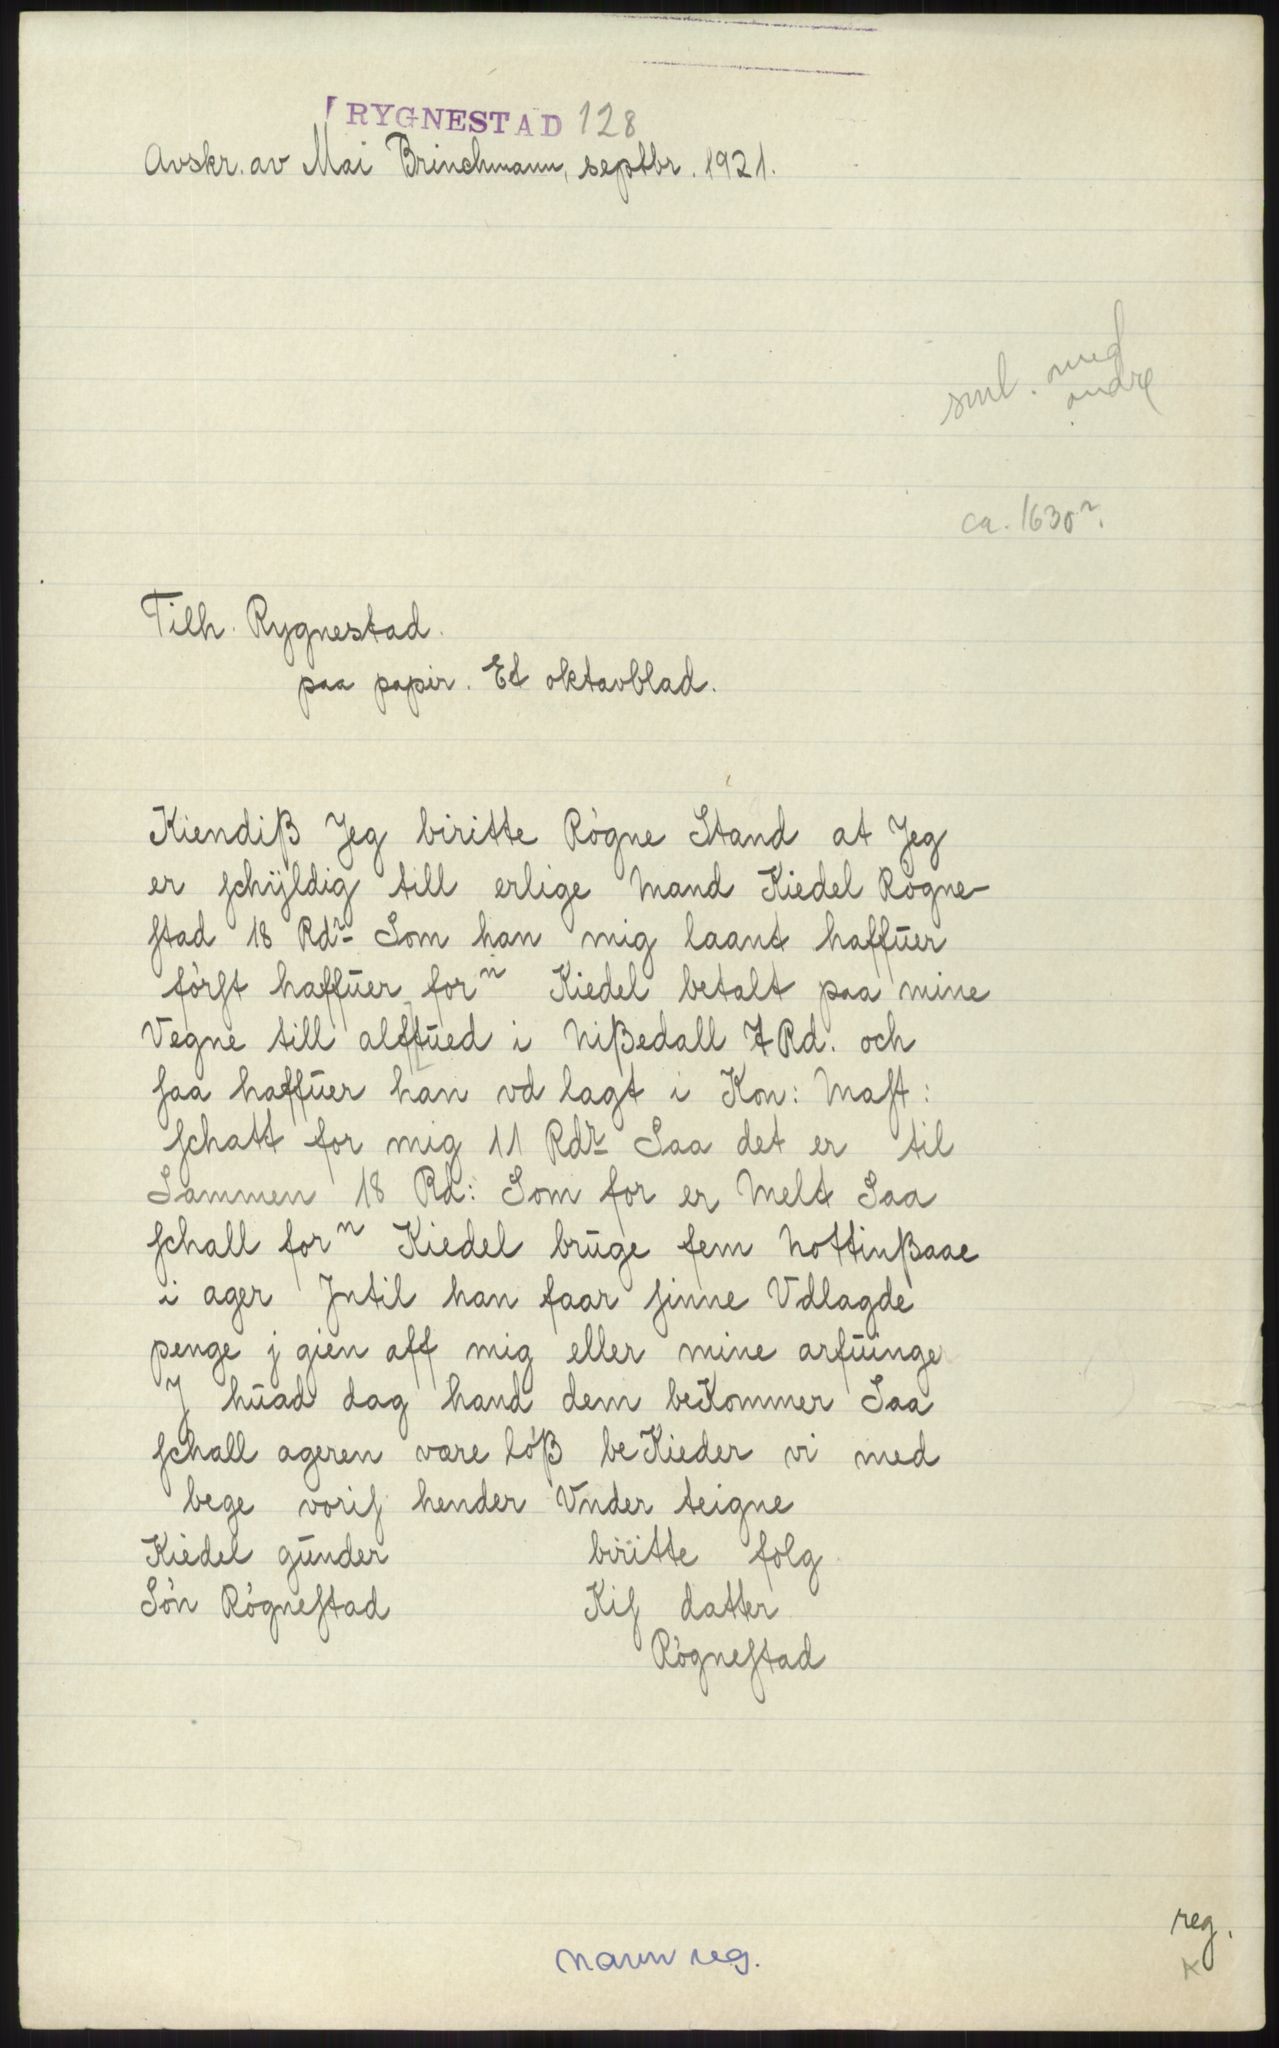 RYGNESTAD 128
Avskr. av Mai Brinchmann, septbr. 1921.
sml. med
andre
ca. 1630?
Tilh. Rygnestad.
paa papir. Et oktavblad.
Kiendiß Jeg biritte Rógne Stand at Jeg
er schÿldig till erlige Mand Kiedel Rógne-
stad 18 Rdr Som han mig laant haffuer
fórst haffuer forn Kiedel betalt paa mine
Vegne till alffued i Nißedall 7 Rd. och
saa haffuer han vd lagt i Kon: Mast:
schatt for mig 11 Rdr Saa det er til
Sammen 18 Rd: Som for er Melt Saa
schall forn Kiedel brüge fem Nottinßaae
i ager Intil han faar sinne Vdlagde
penge j gien aff mig eller mine arfuinge
J huad dag hand dem beKommer Saa
schall ageren være lóß beKieder vi med
bege voris hender Vnder teigne
Kiedel gunder
Són Rógnestad
biritte folg
Kis datter
Rógnestad
reg.
navn reg.